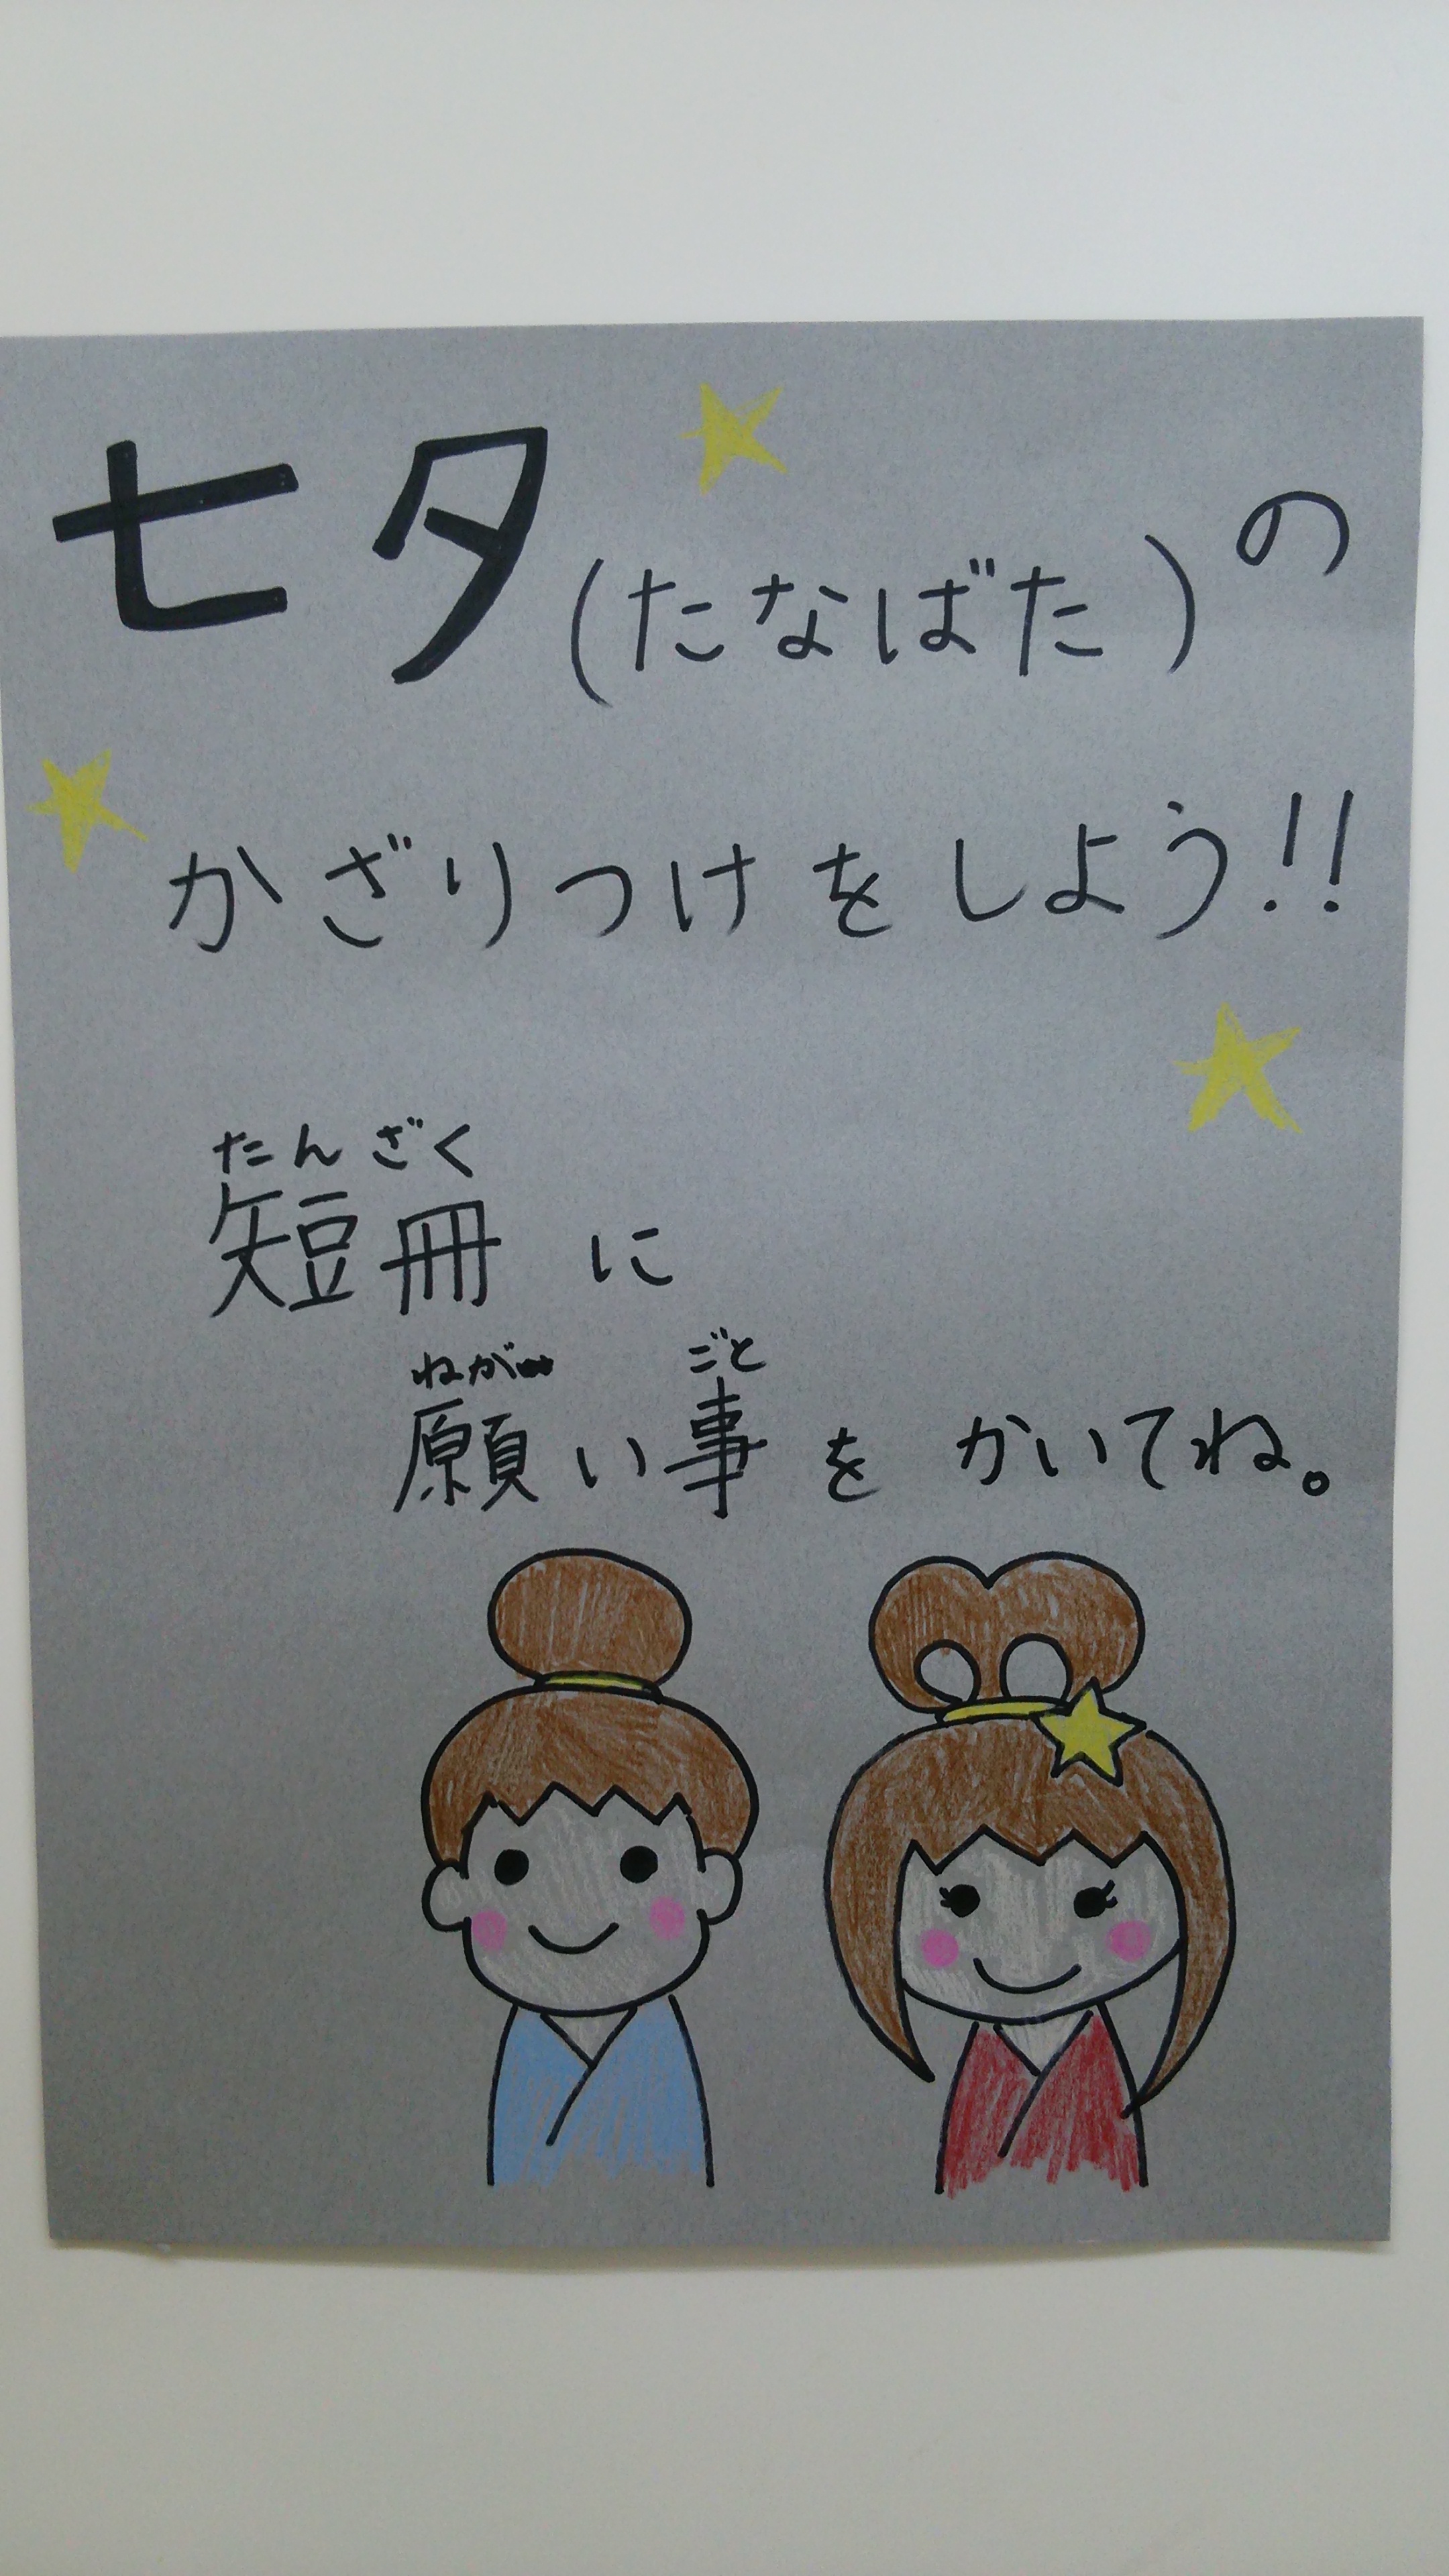 七夕(たなばた)の
かざりつけをしよう!!
たんざく
短冊に
ねが ごと
願い事をかいてね。